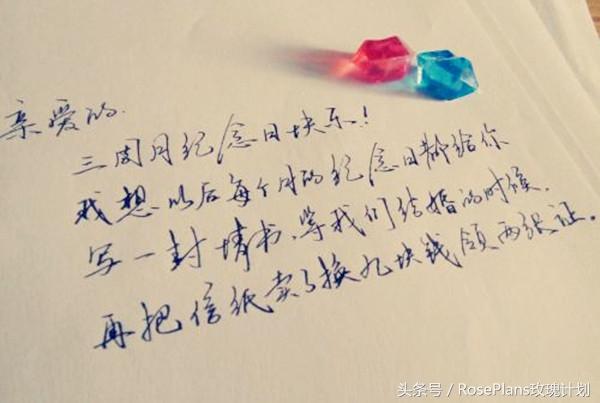 亲爱的.
三周月纪念日快乐!
我想以后每个月的纪念日都给你
写一封情书,等我们结婚的时候,
再把信纸卖了换九块钱领两张证。
头条号 / RosePlans玫瑰计划